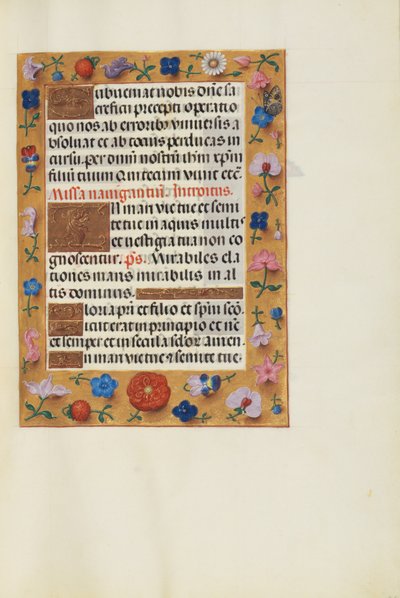 Subueniat nobis dn̄e sa
crificii precepti operatio
quo nos ab erroribꝰ vniuersis a
bsoluat et ab totius perducas in
cursu. per dn̄m nostrū ihm xp̄m
filiū tuum Qui tecum viuit etc̄.
Missa nauigantiū. Introitus.
In mari vie tue et semi
te tue in aquis multis
et vestigia tua non co
gnoscentur. ps. Mirabiles ela
tiones maris mirabilis in al
tis dominus.
Gloria pr̄i et filio et spūi sc̄o.
Sicut erat in principio et nc̄
et semper et in secula scl̄oꝝ amen.
In mari vie tue & semite tue